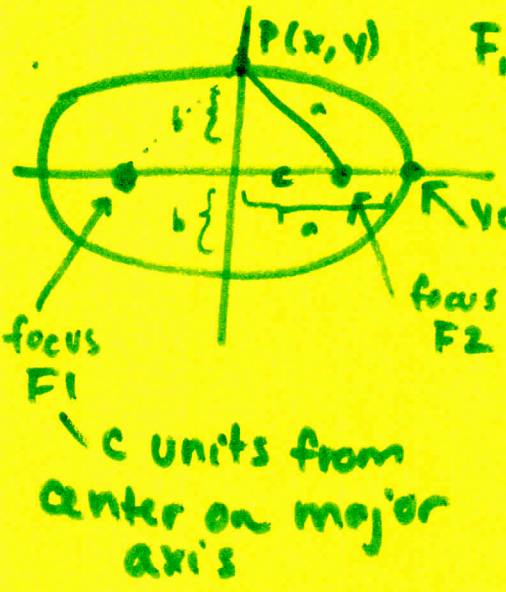 P(x, y)
F1
b
a
c
b
a
focus
F2
focus
F1
c units from
center on major
axis